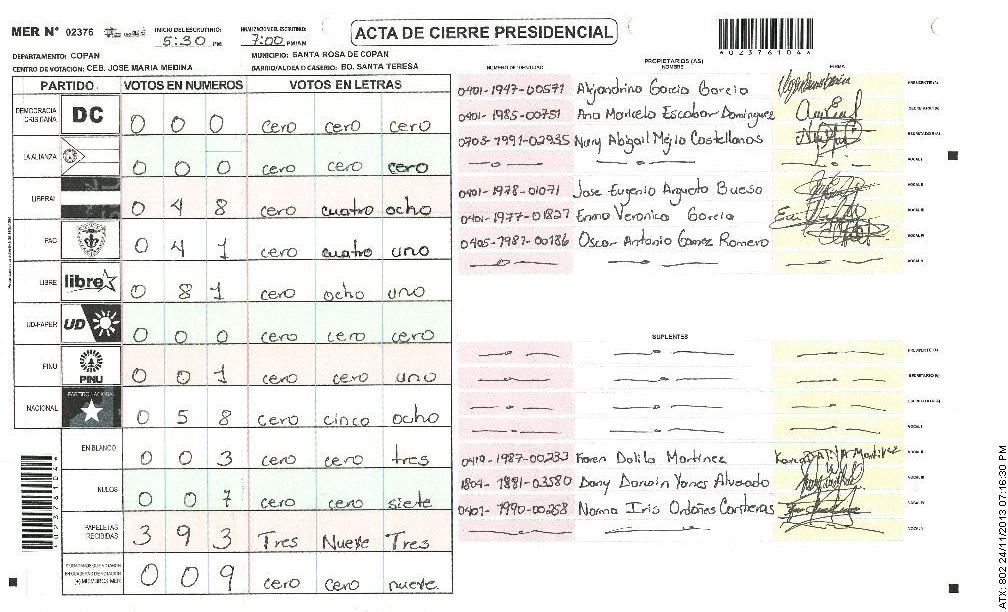 MER N° 02376 INICIO DEL ESCRUTINIO: 5:30 PM FINALIZACION DEL ESCRUTINIO: 7:00 PM/AM
ACTA DE CIERRE PRESIDENCIAL
DEPARTAMENTO: COPAN MUNICIPIO: SANTA ROSA DE COPAN
CENTRO DE VOTACION: CEB. JOSE MARIA MEDINA BARRIO/ALDEA O CASERIO: BO. SANTA TERESA
PARTIDO VOTOS EN NUMEROS VOTOS EN LETRAS
DEMOCRACIA CRISTIANA DC 0 0 0 cero cero cero
LA ALIANZA 0 0 0 cero cero cero
LIBERAL 0 4 8 cero cuatro ocho
PAC 0 4 1 cero cuatro uno
LIBRE libre 0 8 1 cero ocho uno
UD-FAPER UD 0 0 0 cero cero cero
PINU PINU 0 0 1 cero cero uno
NACIONAL PARTIDO NACIONAL 0 5 8 cero cinco ocho
EN BLANCO 0 0 3 cero cero tres
NULOS 0 0 7 cero cero siete
PAPELETAS RECIBIDAS 3 9 3 Tres Nueve Tres
0 0 9 cero cero nueve
*02376104*
NUMERO DE IDENTIDAD PROPIETARIOS (AS) NOMBRE FIRMA
0401-1947-00571 Alejandrino Garcia Garcia PRESIDENTE (A)
0401-1985-00751 Ana Maricela Escobar Dominguez SECRETARIO (A)
0703-1991-02935 Nury Abigail Mejia Castellanos ESCRUTADOR (A)
VOCAL I
0401-1978-01071 Jose Eugenio Argueta Bueso VOCAL II
0401-1977-01827 Enma Veronica Garcia VOCAL III
0405-1987-00186 Oscar Antonio Gomez Romero VOCAL IV
VOCAL V
SUPLENTES
PRESIDENTE (A)
SECRETARIO (A)
ESCRUTADOR (A)
VOCAL I
0419-1987-00233 Karen Dalila Martinez VOCAL II
1804-1981-03580 Dany Darwin Yanes Alvarado VOCAL III
0401-1990-00258 Norma Iris Ordoñes Contreras VOCAL IV
VOCAL V
ATX: 802 24/11/2013 07:16:30 PM